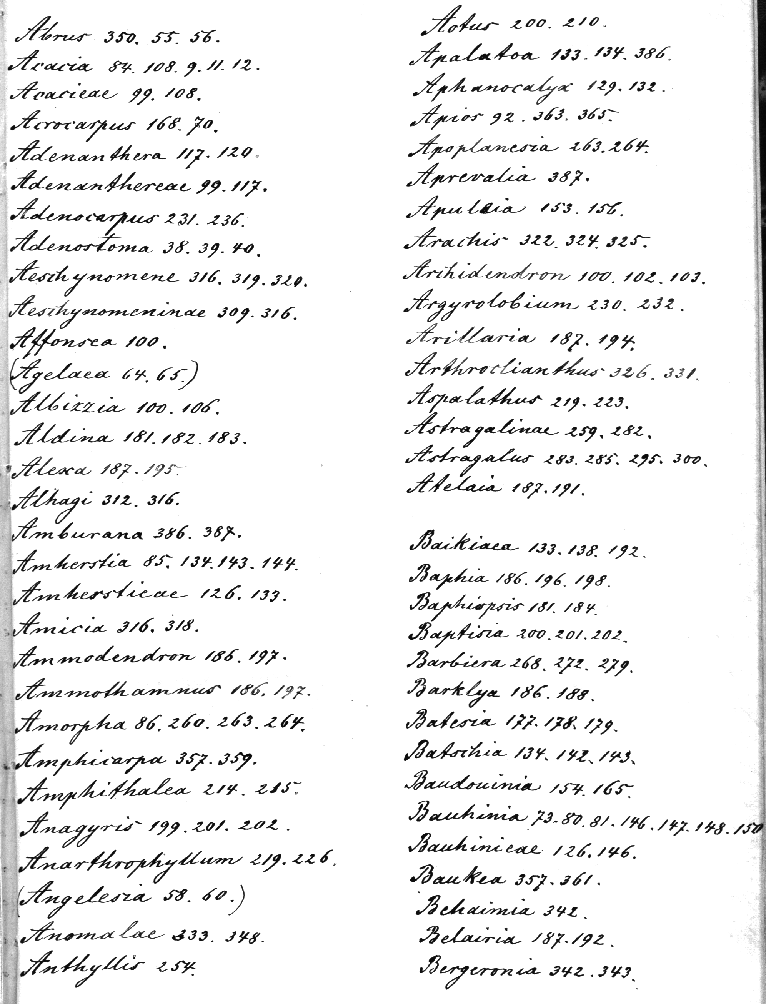 Abrus 350. 55. 56.
Acacia 84. 108. 9. 11. 12.
Acacieae 99. 108.
Acrocarpus 168. 70.
Adenanthera 117. 120.
Adenanthereae 99. 117.
Adenocarpus 231. 236.
Adenostoma 38. 39. 40.
Aeschynomene 316. 319. 320.
Aeschynomeninae 309. 316.
Affonsea 100.
(Agelaea 64. 65.)
Albizzia 100. 106.
Aldina 181. 182. 183.
Alexa 187. 195.
Alhagi 312. 316.
Amburana 386. 387.
Amherstia 85. 134. 143. 144.
Amherstieae 126. 133.
Amicia 316. 318.
Ammodendron 186. 197.
Ammothamnus 186. 197.
Amorpha 86. 260. 263. 264.
Amphicarpa 357. 359.
Amphithalea 214. 215.
Anagyris 199. 201. 202.
Anarthrophyllum 219. 226.
(Angelesia 58. 60.)
Anomalae 333. 348.
Anthyllis 254.
Aotus 200. 210.
Apalatoa 133. 134. 386.
Aphanocalyx 129. 132.
Apios 92. 363. 365.
Apoplanesia 263. 264.
Aprevalia 387.
Apuleia 153. 156.
Arachis 322. 324. 325.
Archidendron 100. 102. 103.
Argyrolobium 230. 232.
Arillaria 187. 194.
Arthroclianthus 326. 331.
Aspalathus 219. 223.
Astragalinae 259. 282.
Astragalus 283. 285. 295. 300.
Ateleia 187. 191.
Baikiaea 133. 138. 192.
Baphia 186. 196. 198.
Baphiopsis 181. 184.
Baptisia 200. 201. 202.
Barbiera 268. 272. 279.
Barklya 186. 188.
Batesia 177. 178. 179.
Batschia 134. 142. 143.
Baudouinia 154. 165.
Bauhinia 73. 80. 81. 146. 147. 148. 150
Bauhinieae 126. 146.
Baukea 357. 361.
Behaimia 342.
Belairia 187. 192.
Bergeronia 342. 343.